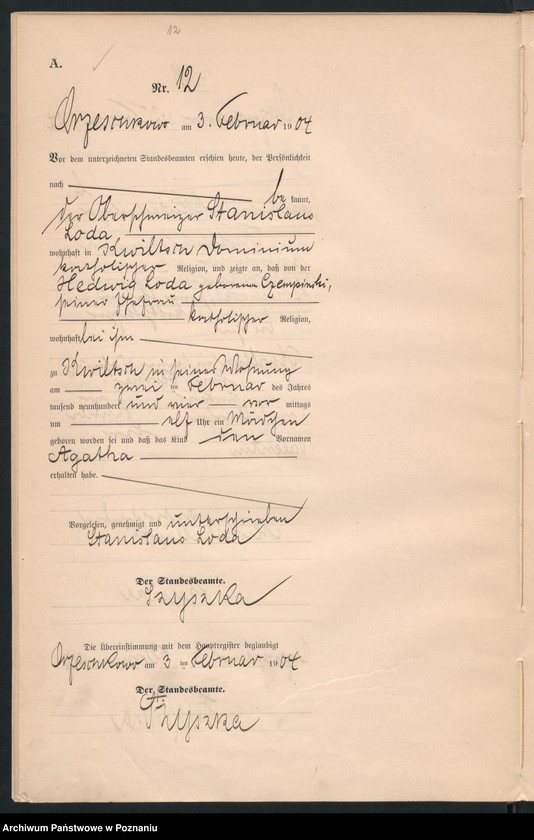 12
A.
Nr. 12
Orzeschkowo am 3. Februar 1904
Vor dem unterzeichneten Standesbeamten erschien heute, der Persönlichkeit
nach be kannt,
der Oberschweizer Stanislaus
Loda,
wohnhaft in Kwiltsch Dominium
katholischer Religion, und zeigte an, daß von der
Hedwig Loda geborenen Czempinski,
seiner Ehefrau
katholischer Religion,
wohnhaft bei ihm
zu Kwiltsch in seiner Wohnung
am zwei ten Februar des Jahres
tausend neunhundert und vier vor mittags
um elf Uhr ein Mädchen
geboren worden sei und daß das Kind den Vornamen
Agatha
erhalten habe.
Vorgelesen, genehmigt und unterschrieben
Stanislaus Loda
Der Standesbeamte.
Szyszka
Die Übereinstimmung mit dem Hauptregister beglaubigt
Orzeschkowo am 3 ten Februar 1904
Der Standesbeamte.
Szyszka
Archiwum Państwowe w Poznaniu